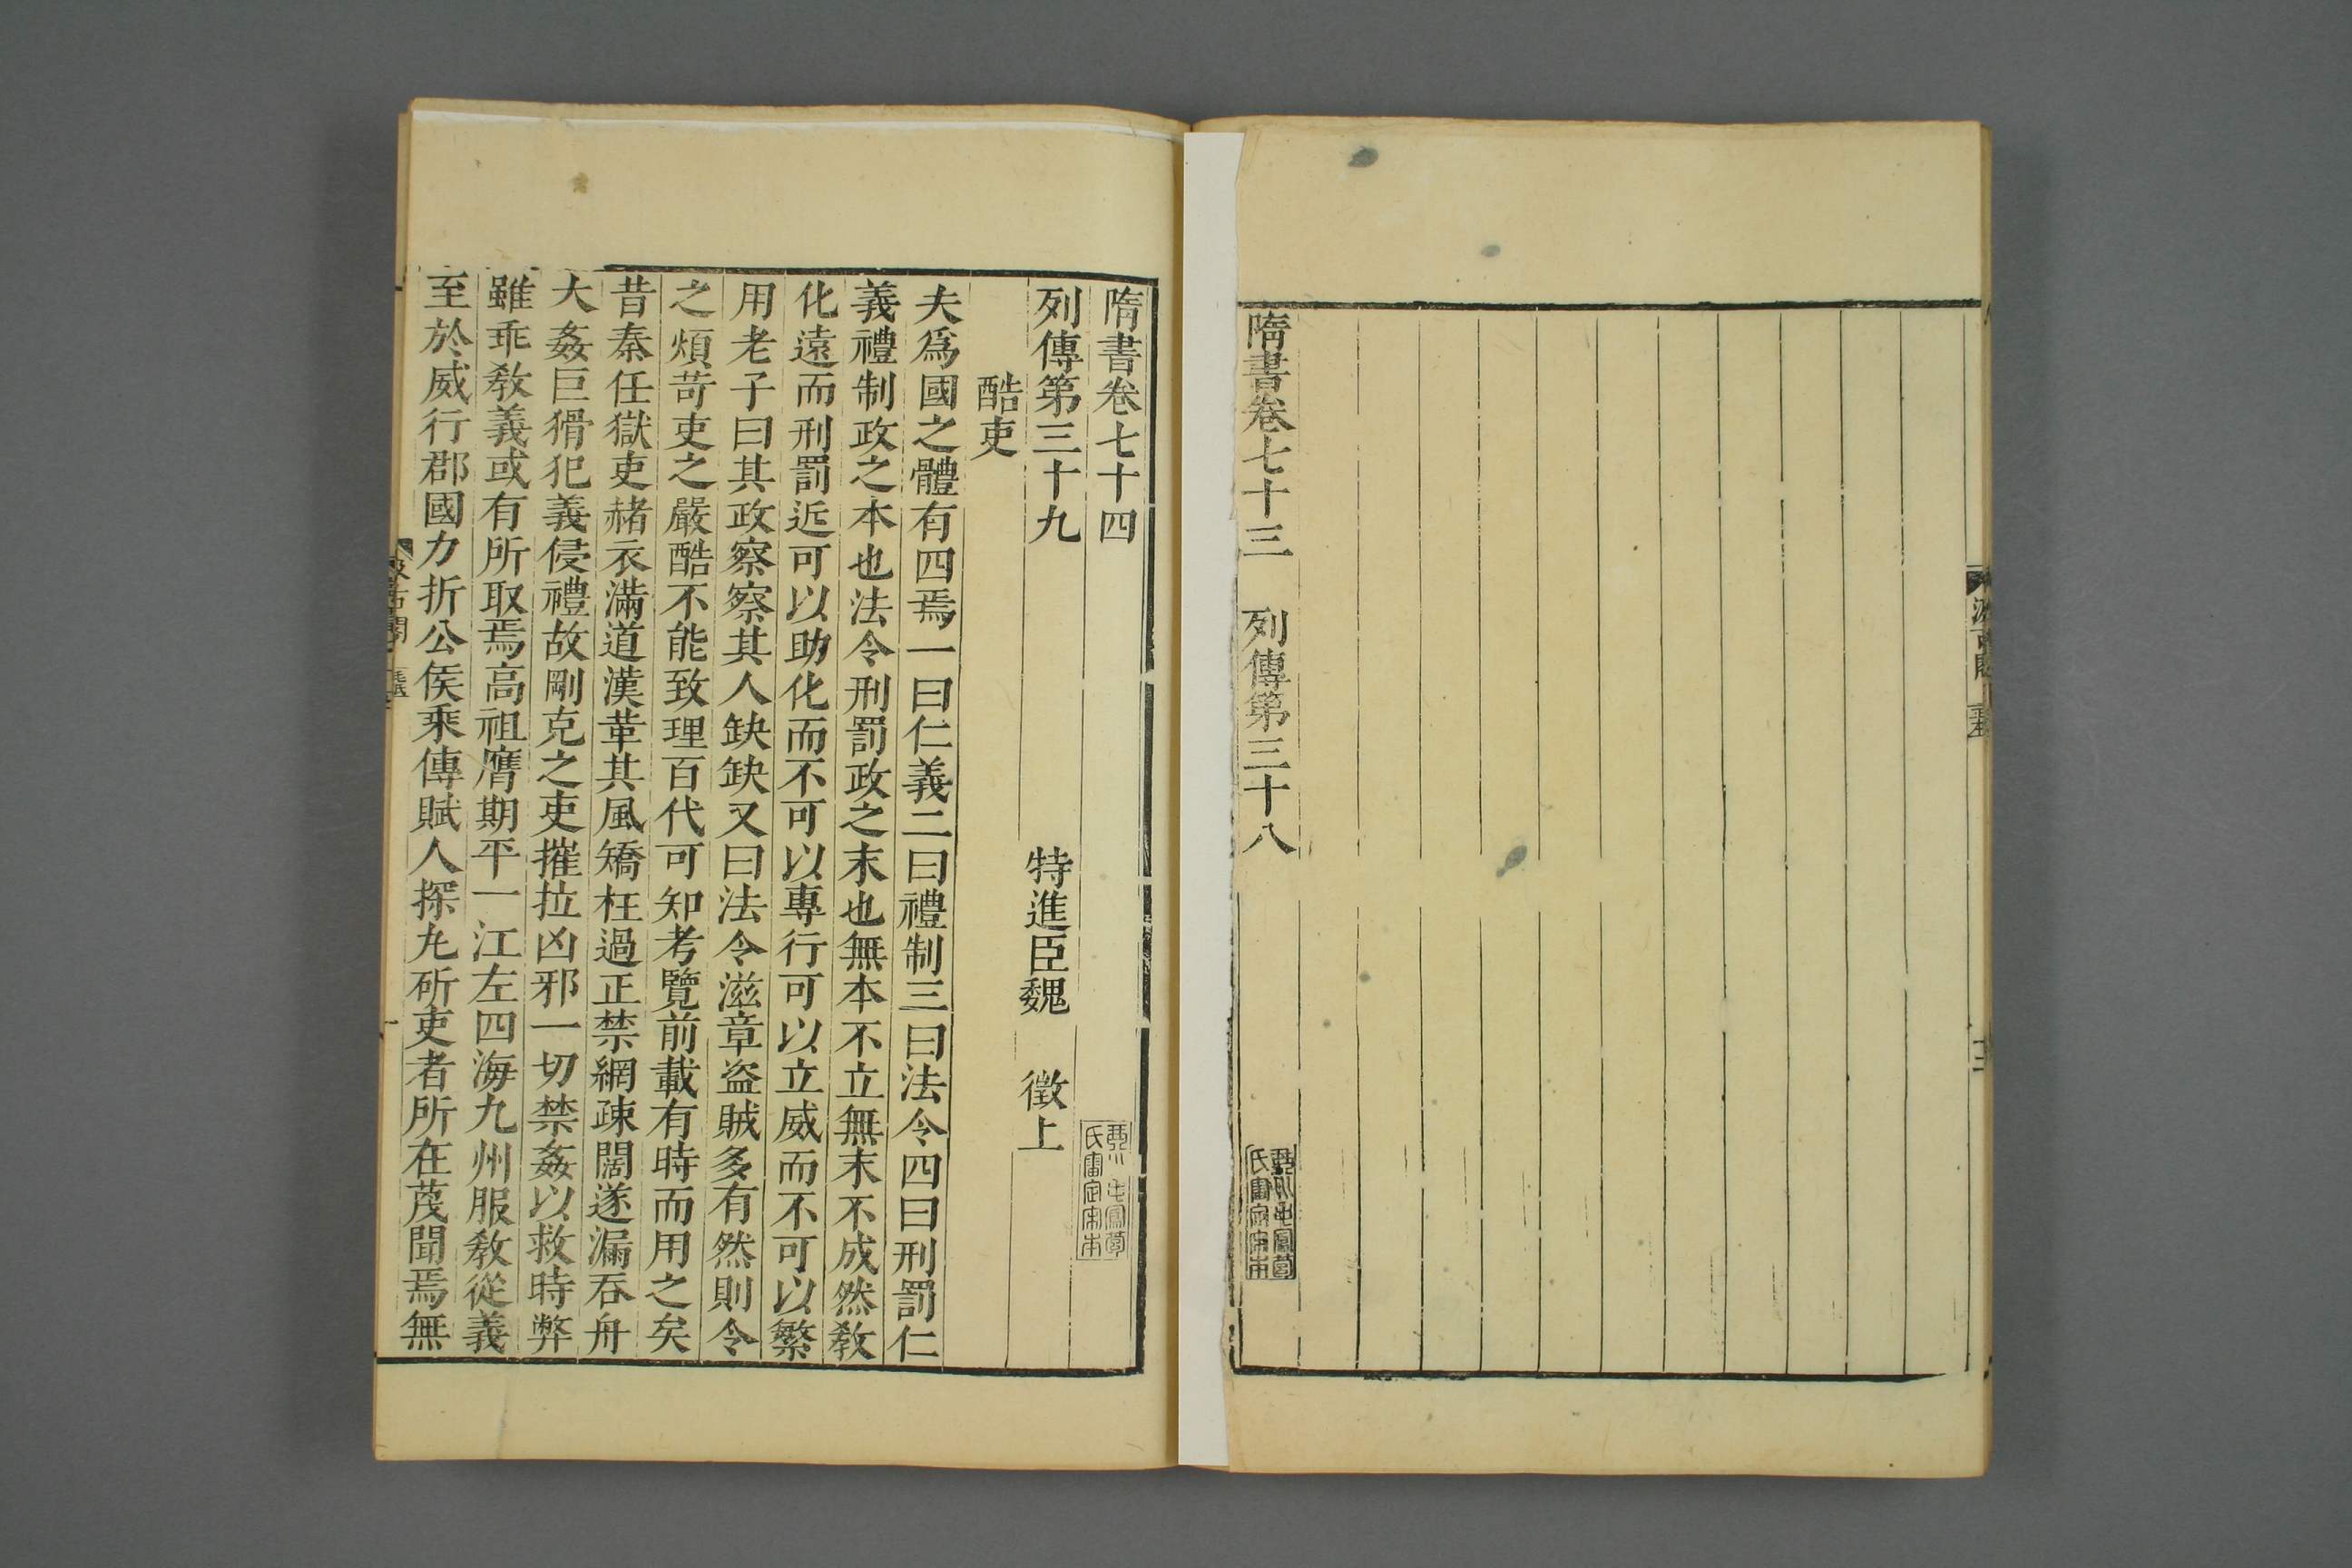 隋書卷七十三　列傳第三十八
隋書卷七十四
列傳第三十九　特進臣魏　徵上
酷吏
夫爲國之體有四焉一曰仁義二曰禮制三曰法令四曰刑罰仁
義禮制政之本也法令刑罰政之末也無本不立無末不成然敎
化遠而刑罰近可以助化而不可以專行可以立威而不可以繁
用老子曰其政察察其人缺缺又曰法令滋章盜賊多有然則令
之煩苛吏之嚴酷不能致理百代可知考覽前載有時而用之矣
昔秦任獄吏赭衣滿道漢革其風矯枉過正禁網疎闊遂漏吞舟
大姦巨猾犯義侵禮故剛克之吏摧拉凶邪一切禁姦以救時弊
雖乖敎義或有所取焉高祖膺期平一江左四海九州服敎從義
至於威行郡國力折公侯乘傳賦人探丸斫吏者所在茂聞焉無